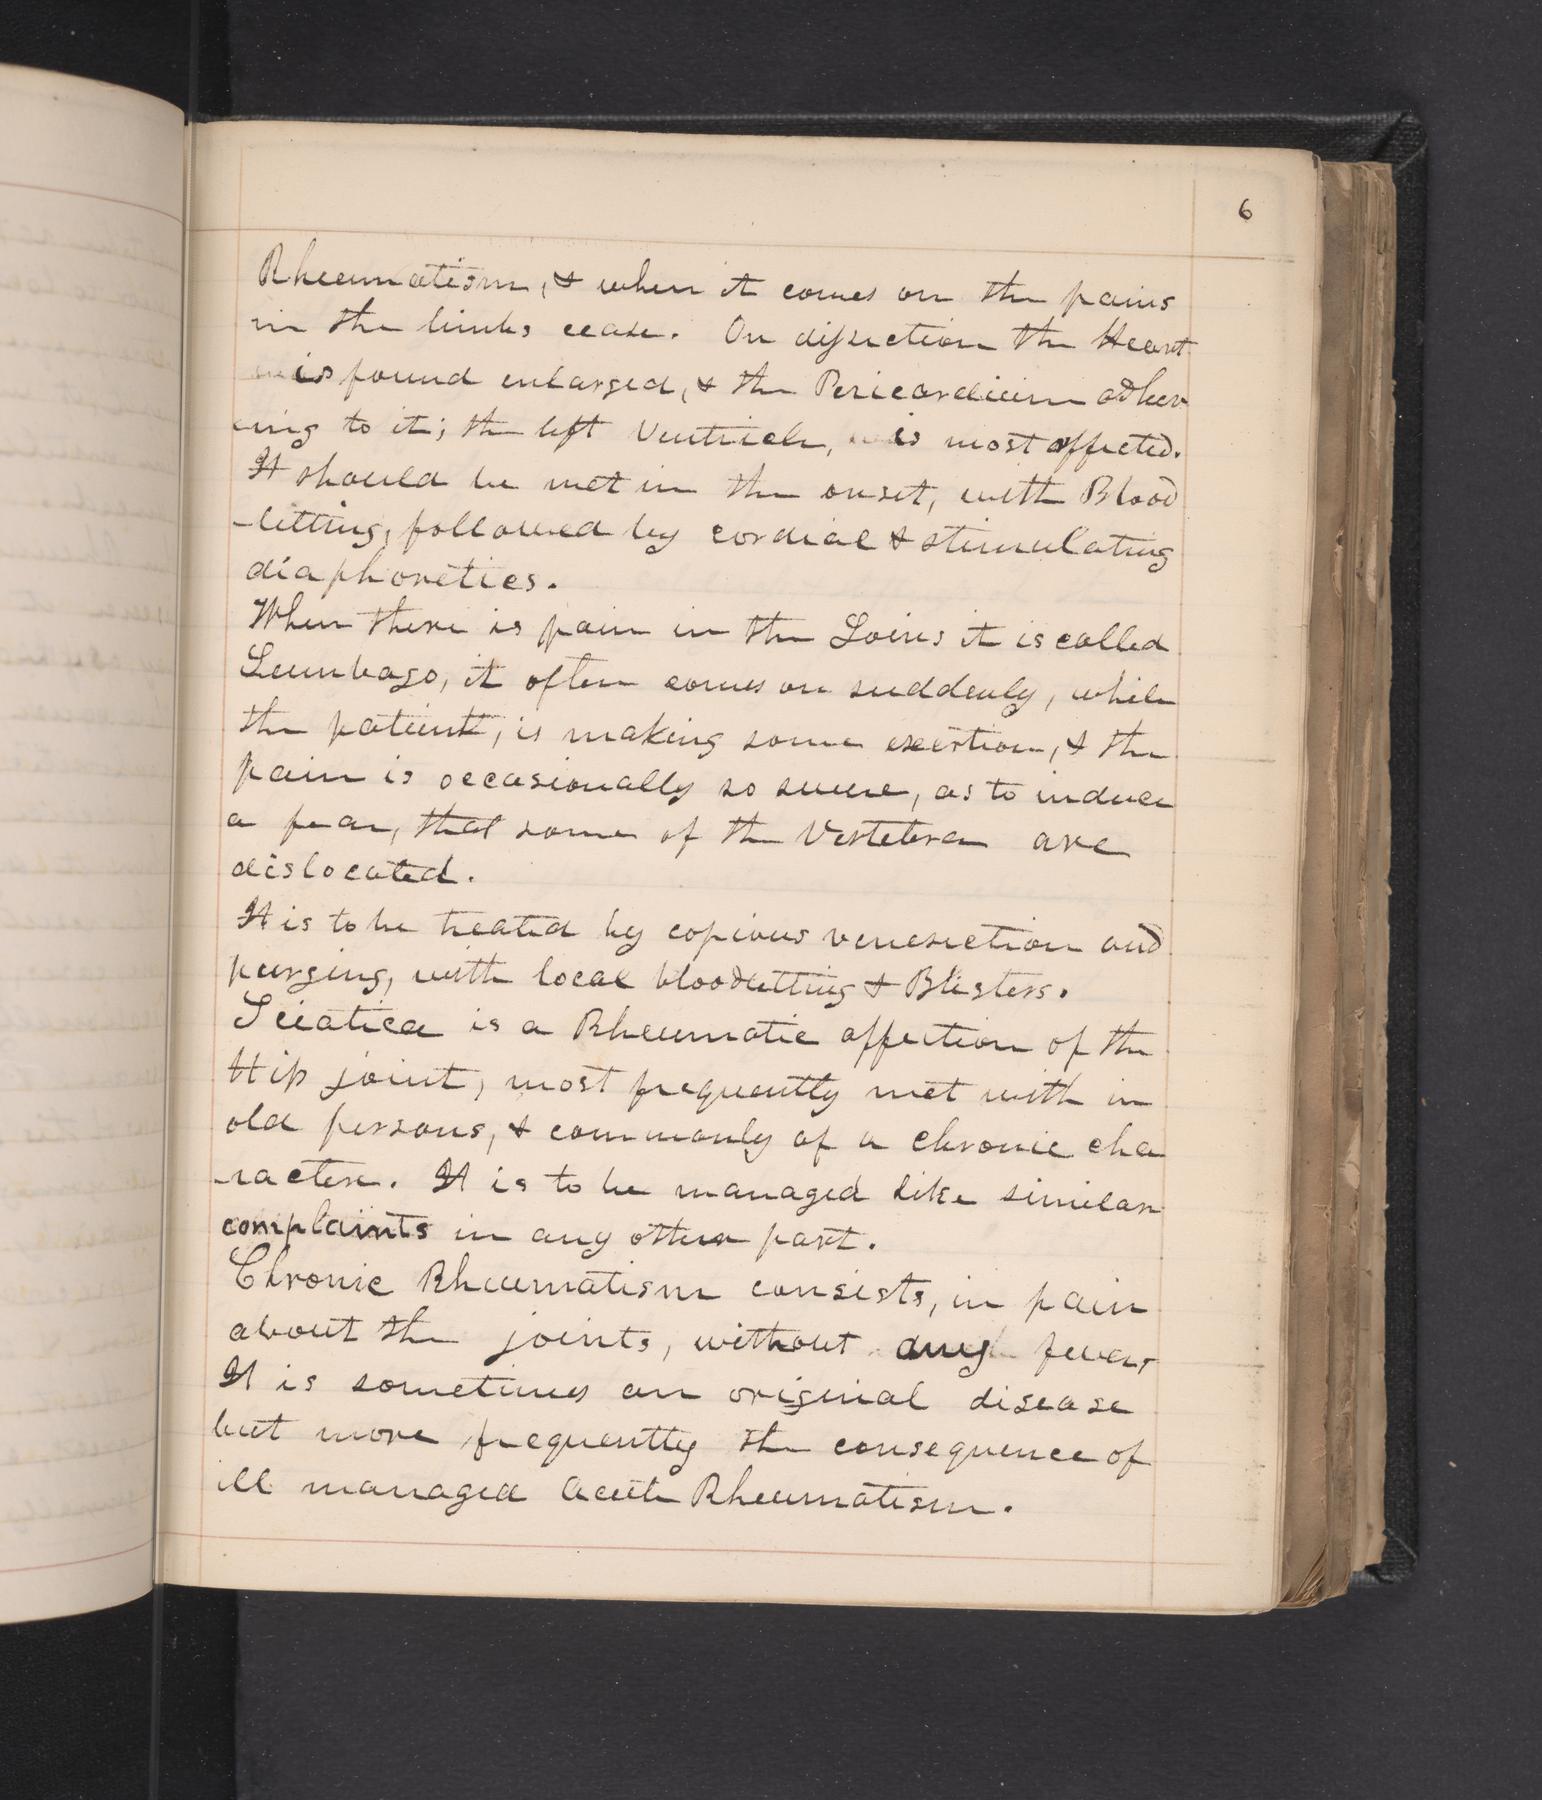 6
Rheumatism, & when it comes on the pains
in the limbs cease. On dissection the Heart
is found enlarged, & the Pericardium adher
ing to it; the left Ventricle, is most affected.
It should be met in the onset, with Blood
-letting, followed by cordial & stimulating
diaphoretics.
When there is pain in the Loins it is called
Lumbago, it often comes on suddenly, while
the patient, is making some exertion, & the
pain is occasionally so severe, as to induce
a fear, that some of the Vertebra are
dislocated.
It is to be treated by copious venesection and
purging, with local bloodletting & Blisters.
Sciatica is a Rheumatic affection of the
Hip joint, most frequently met with in
old persons, & commonly of a chronic cha
-racter. It is to be managed like similar
complaints in any other part.
Chronic Rheumatism consists, in pain
about the joints, without any fever,
It is sometimes an original disease
but more frequently the consequence of
ill managed Acute Rheumatism.